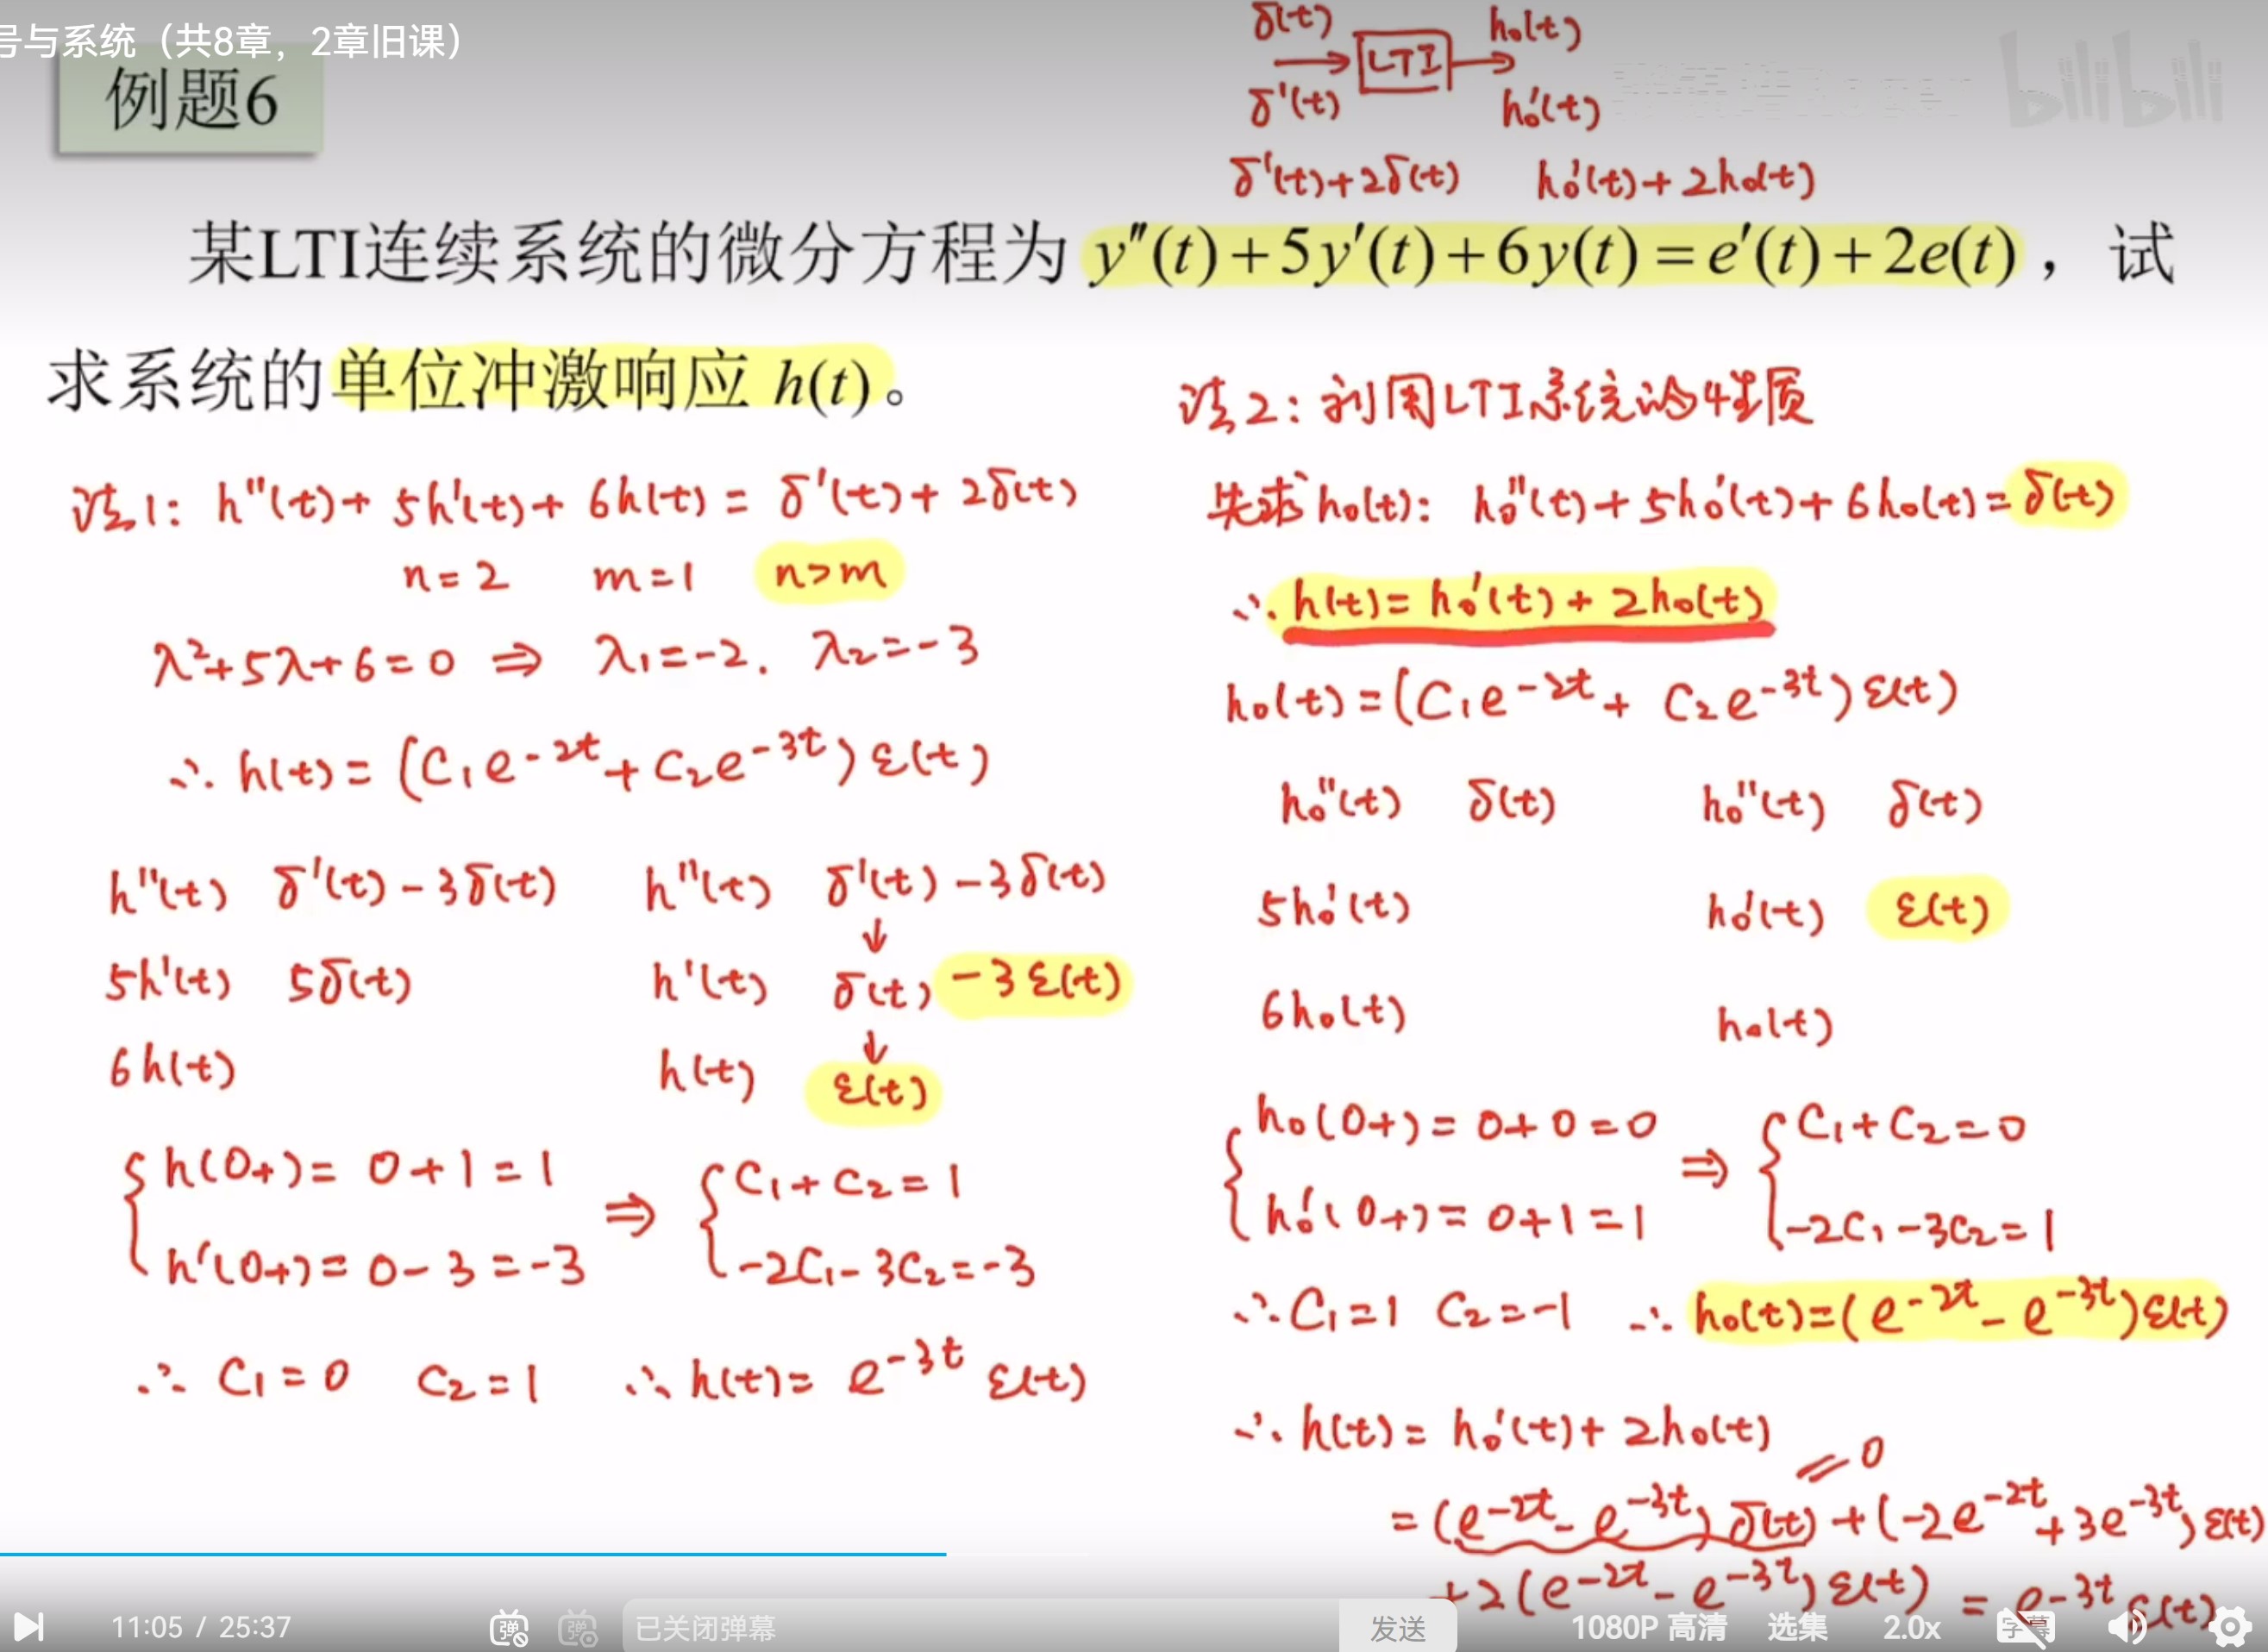 号与系统（共8章，2章旧课）
例题6
δ(t) → LTI → h₀(t)
δ'(t) h₀'(t)
δ'(t)+2δ(t) h₀'(t)+2h₀(t)
bilibili
某LTI连续系统的微分方程为 y″(t)+5y′(t)+6y(t)=e′(t)+2e(t)，试
求系统的单位冲激响应 h(t)。
法1: h''(t)+5h'(t)+6h(t)=δ'(t)+2δ(t)
n=2 m=1 n>m
λ²+5λ+6=0 ⇒ λ₁=-2. λ₂=-3
∴ h(t)=(C₁e^{-2t}+C₂e^{-3t})ε(t)
h''(t) δ'(t)-3δ(t) h''(t) δ'(t)-3δ(t)
↓
5h'(t) 5δ(t) h'(t) δ(t)-3ε(t)
↓
6h(t) h(t) ε(t)
{ h(0+)=0+1=1 ⇒ { C₁+C₂=1
h'(0+)=0-3=-3 -2C₁-3C₂=-3
∴ C₁=0 C₂=1 ∴ h(t)=e^{-3t}ε(t)
法2: 利用LTI系统的性质
先求h₀(t): h₀''(t)+5h₀'(t)+6h₀(t)=δ(t)
∴ h(t)=h₀'(t)+2h₀(t)
h₀(t)=(C₁e^{-2t}+C₂e^{-3t})ε(t)
h₀''(t) δ(t) h₀''(t) δ(t)
5h₀'(t) h₀'(t) ε(t)
6h₀(t) h₀(t)
{ h₀(0+)=0+0=0 ⇒ { C₁+C₂=0
h₀'(0+)=0+1=1 -2C₁-3C₂=1
∴ C₁=1 C₂=-1 ∴ h₀(t)=(e^{-2t}-e^{-3t})ε(t)
∴ h(t)=h₀'(t)+2h₀(t)
=0
=(e^{-2t}-e^{-3t})δ(t)+(-2e^{-2t}+3e^{-3t})ε(t)
+2(e^{-2t}-e^{-3t})ε(t)=e^{-3t}ε(t)
11:05 / 25:37 弹 弹 已关闭弹幕 发送 1080P 高清 选集 2.0x 字幕